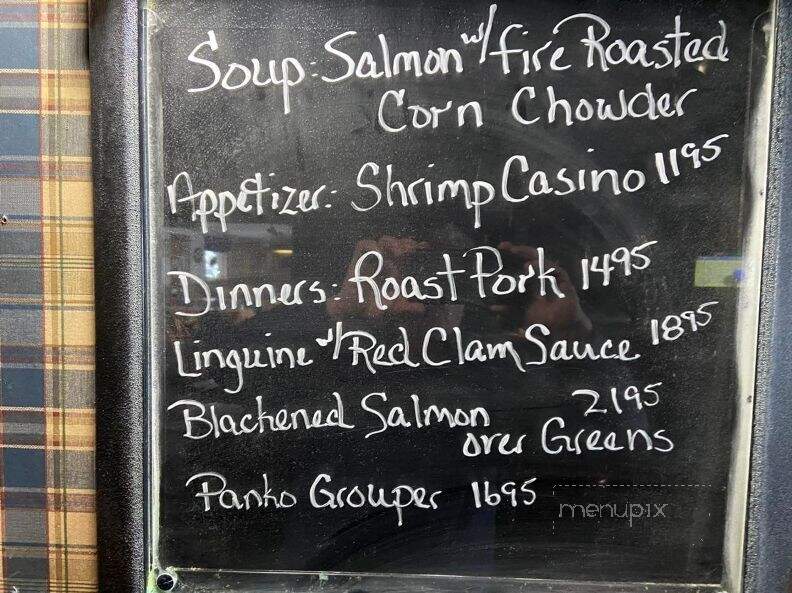 Soup: Salmon w/ fire Roasted
Corn Chowder
Appetizer: Shrimp Casino 1195
Dinners: Roast Pork 1495
Linguine w/ Red Clam Sauce 1895
Blackened Salmon 2195
over Greens
Panko Grouper 1695
menupix